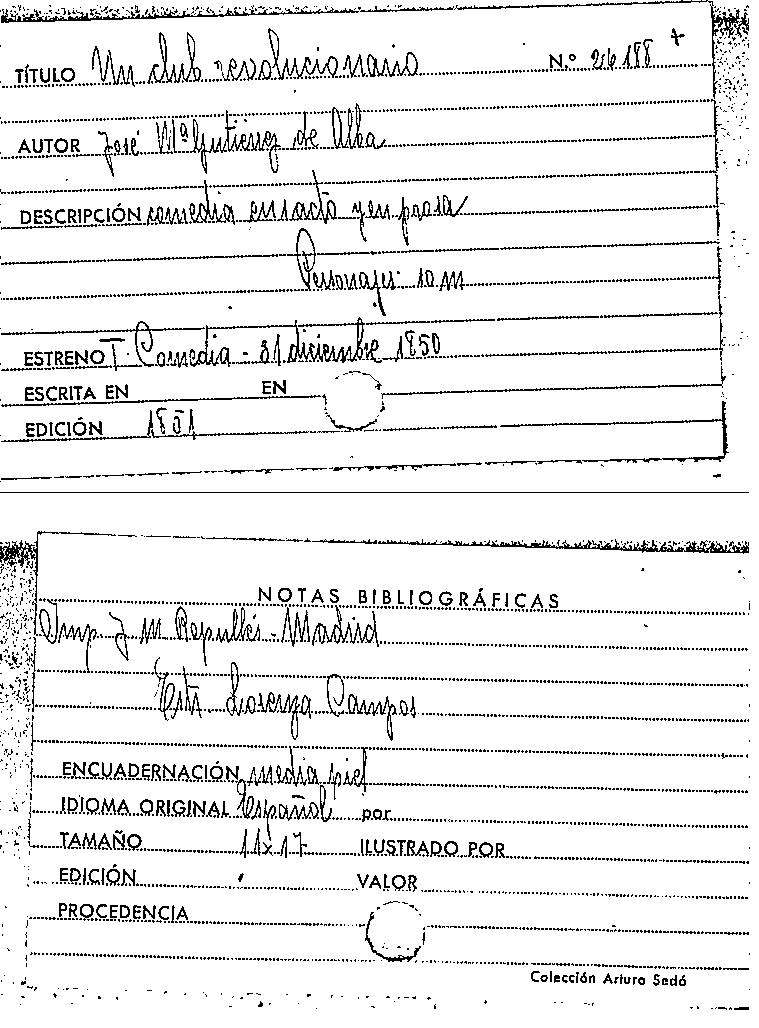 TÍTULO Un club revolucionario N.º 26188 +
AUTOR José Mª Gutiérrez de Alba
DESCRIPCIÓN comedia en 1 acto y en prosa
Personajes: 10 M
ESTRENO T. Comedia - 31 diciembre 1850
ESCRITA EN EN
EDICIÓN 1851
NOTAS BIBLIOGRÁFICAS
Imp J M Repullés - Madrid
Lorenza Campos
ENCUADERNACIÓN media piel
IDIOMA ORIGINAL Español por
TAMAÑO 11x17 ILUSTRADO POR
EDICIÓN VALOR
PROCEDENCIA
Colección Arturo Sedó